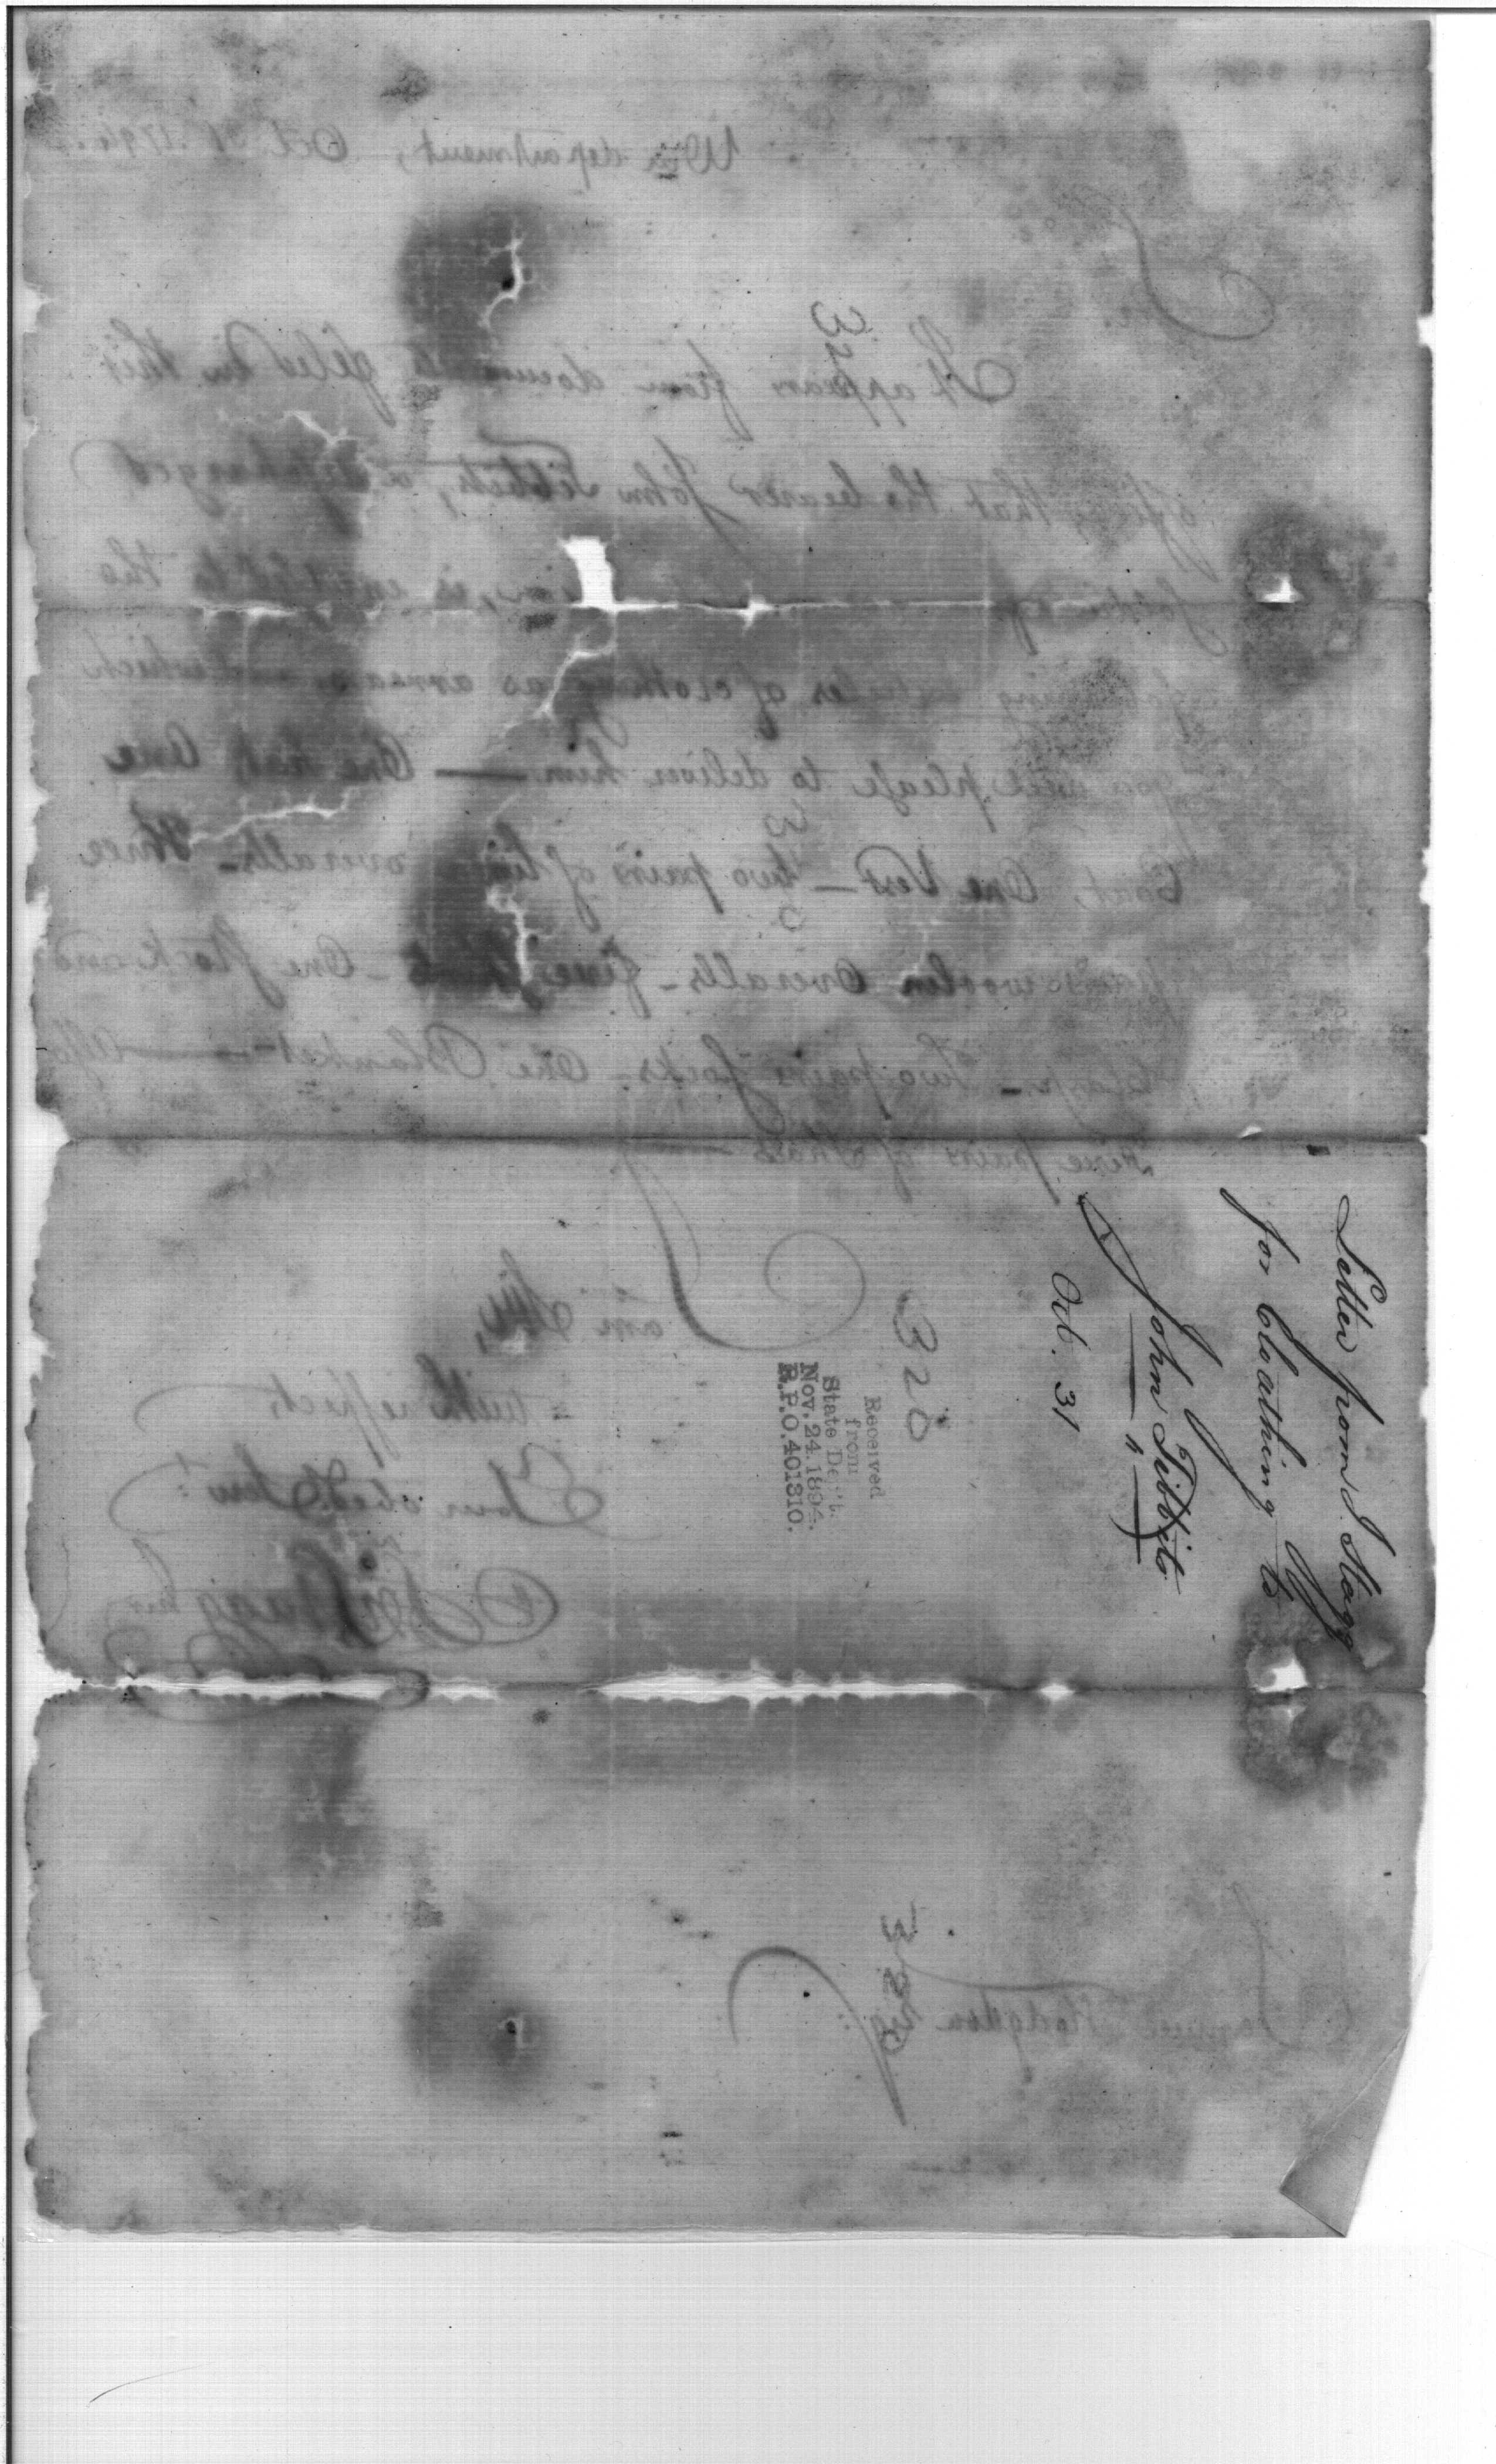 Letter from J. Stagg
for Cloathing to
John Tibbits
Oct. 31
328
Received
from
State Dept.
Nov. 24. 1894.
R.P.O. 401310.
War department, Oct. 31. 1794.
It appears from filed in this
office that the bearer John Tibbets, a discharged
is entitled to the
following articles of clothing as arrears which
you will please to deliver him — One hat, One
Coat, One Vest — two pairs of linen overalls — three
pairs woolen Overalls — five — One Stock and
Clasp — two pairs socks — One Blanket — Also
Five pairs of Shoes
am Sir,
with respect,
Your obed. Serv.t
Jno Stagg Jun.
Samuel Hodgdon Esq.